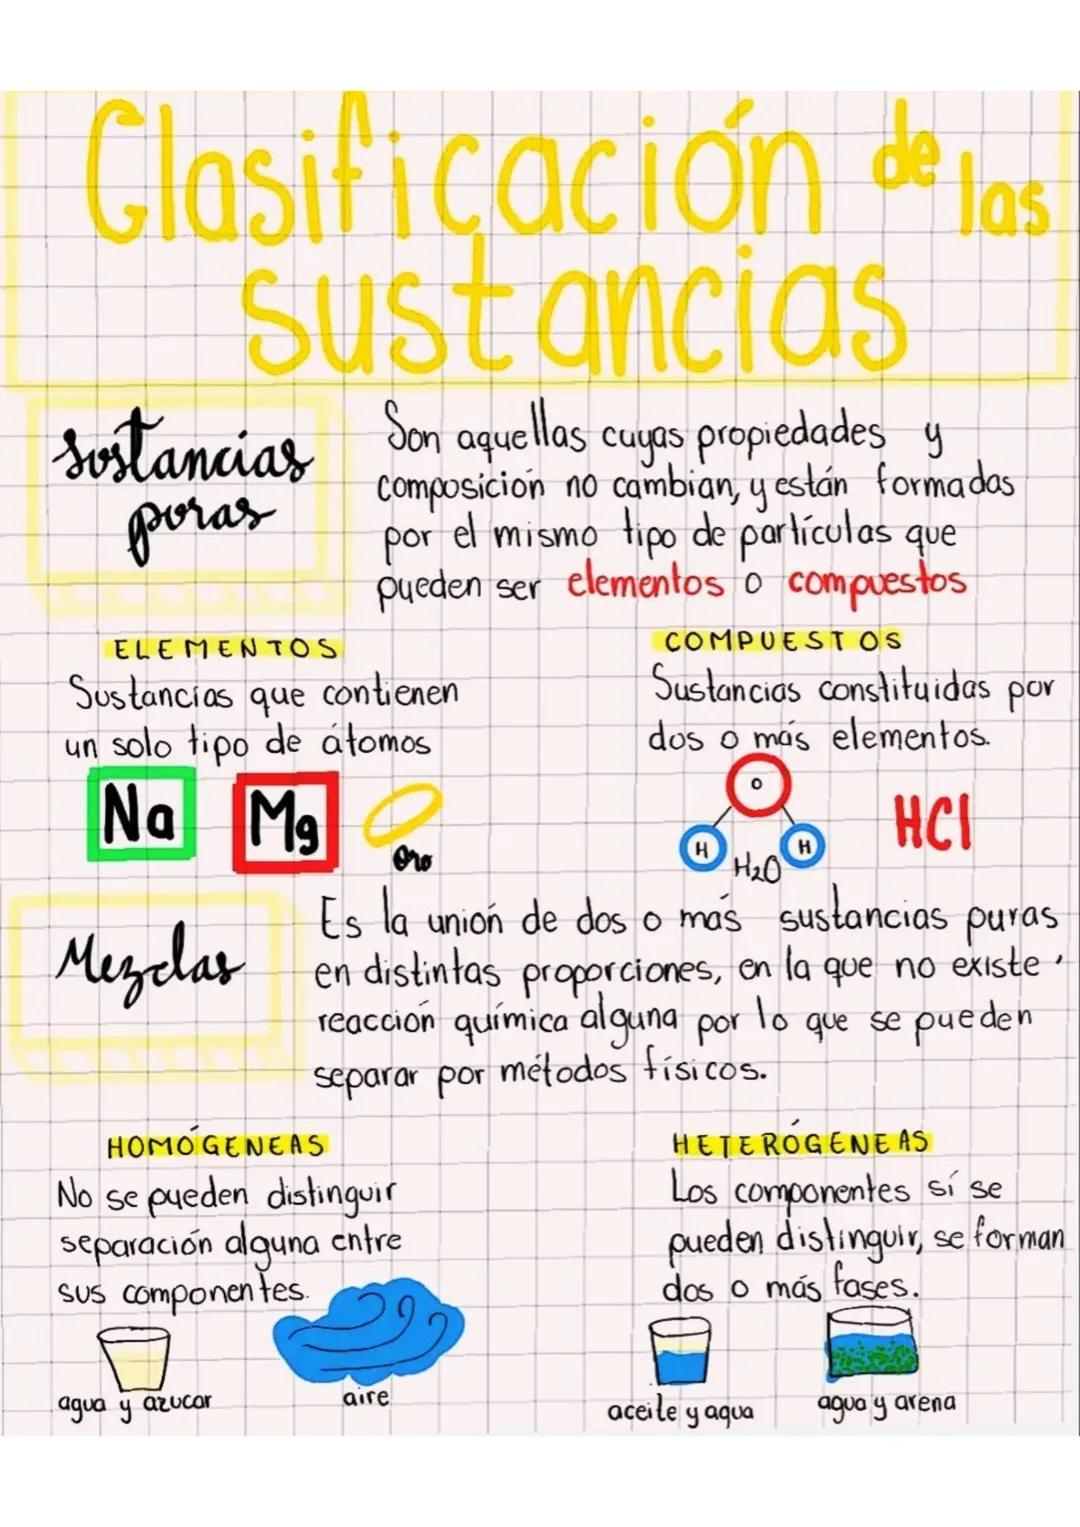 Clasificación de las
sustancias
Sustancias
puras
Son aquellas cuyas propiedades y
composición no cambian, y están formadas
por el mismo tipo de partículas que
pueden ser elementos o compuestos
ELEMENTOS
Sustancias que contienen
un solo tipo de átomos
Na
Mg
Oro
COMPUESTOS
Sustancias constituidas por
dos o más elementos.
O
H
H
H₂O
HCl
Mezclas
Es la unión de dos o más sustancias puras
en distintas proporciones, en la que no existe
reacción química alguna por lo que se pueden
separar por métodos físicos.
HOMÓGENEAS
No se pueden distinguir
separación alguna entre
sus componentes.
agua y azucar
aire
HETERÓGENEAS
Los componentes sí se
pueden distinguir, se forman
dos o más fases.
aceite y agua
agua y arena